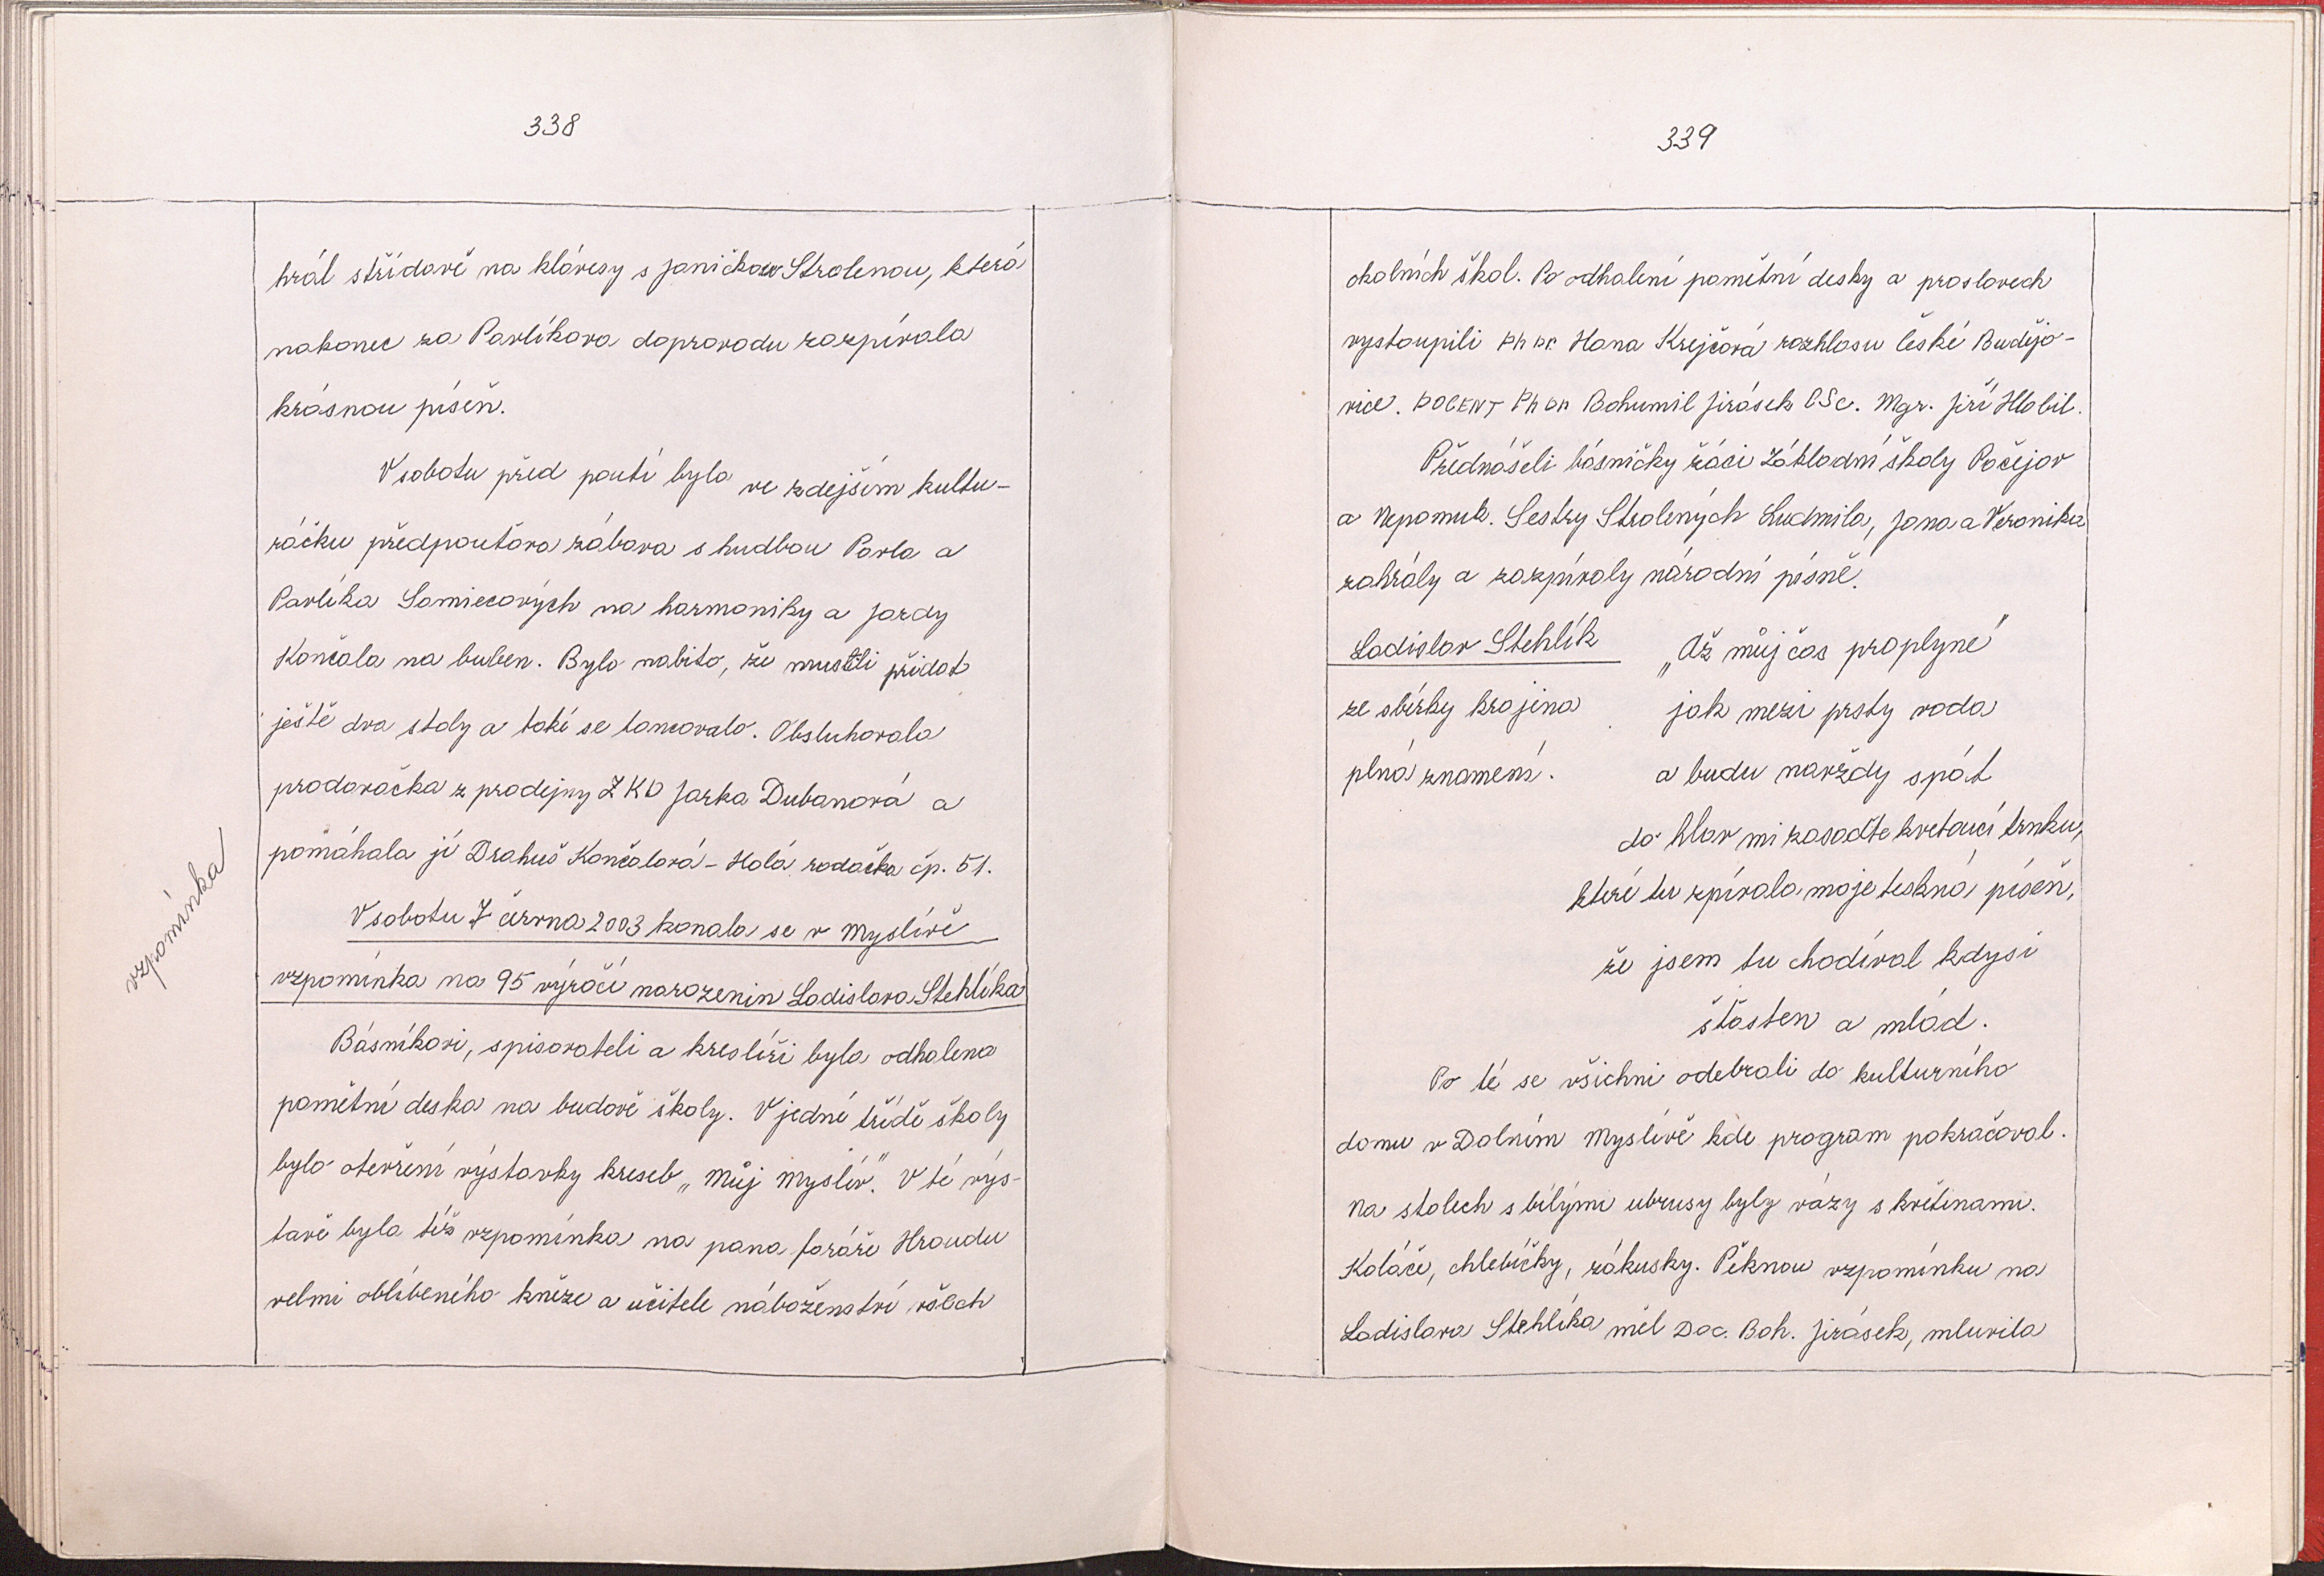 338
hrál střídavě na klávesy s Janičkou Strolenou, která
nakonec za Pavlíkova doprovodu zazpívala
krásnou píseň.
V sobotu před poutí byla ve zdejším kultu-
ráčku předpouťová zábava s hudbou Pavla a
Pavlíka Samiecových na harmoniky a Jardy
Končala na buben. Bylo nabito, že museli přidat
ještě dva stoly a také se tancovalo. Obsluhovala
prodavačka z prodejny ZKD Jarka Dubanová a
pomáhala jí Drahuš Končalová - Holá rodačka čp. 51.
vzpomínka
V sobotu 7 června 2003 konala se v Myslívě
vzpomínka na 95 výročí narozenin Ladislava Stehlíka
Básníkovi, spisovateli a kreslíři byla odhalena
pamětní deska na budově školy. V jedné třídě školy
bylo otevření výstavky kreseb „Můj Myslív." V té výs-
tavě byla též vzpomínka na pana faráře Hroudu
velmi oblíbeného kněze a učitele náboženství všech
339
okolních škol. Po odhalení pamětní desky a proslovech
vystoupili PhDr. Hana Krejčová rozhlasu České Budějo-
vice. DOCENT PhDr Bohumil Jirásek CSc. Mgr. Jiří Hlobil.
Přednášeli básničky žáci Základní školy Pačejov
a Nepomuk. Sestry Strolených Ludmila, Jana a Veronika
zahrály a zazpívaly národní písně.
Ladislav Stehlík „Až můj čas proplyne"
ze sbírky krajina jak mezi prsty voda
plná znamení. a budu navždy spát
do hlav mi zasaďte kvetoucí trnku,
které tu zpívala moje teskná píseň,
že jsem tu chodíval kdysi
šťasten a mlád.
Po té se všichni odebrali do kulturního
domu v Dolním Myslívě kde program pokračoval.
Na stolech s bílými ubrusy byly vázy s květinami.
Koláče, chlebíčky, zákusky. Pěknou vzpomínku na
Ladislava Stehlíka měl Doc. Boh. Jirásek, mluvila